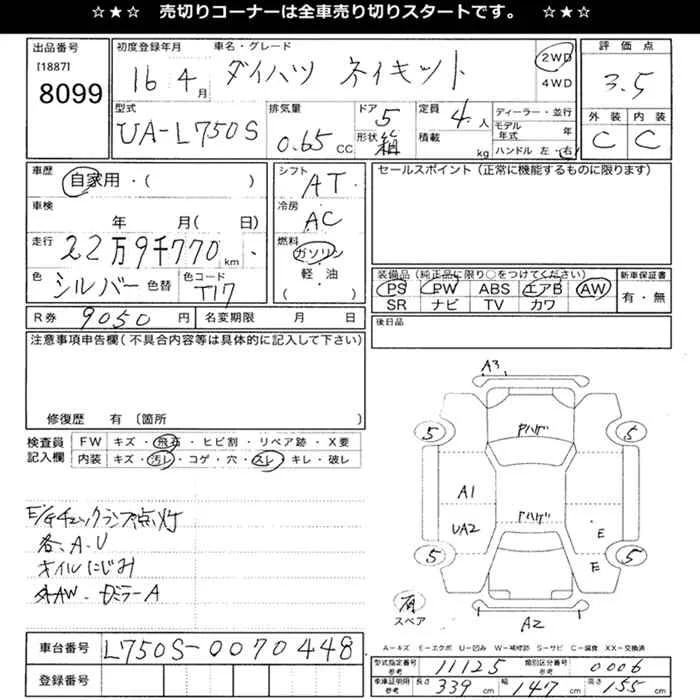 ☆★☆ 売切りコーナーは全車売り切りスタートです。 ☆★☆
出品番号
[1887]
8099
初度登録年月
16 4月
車名・グレード
ダイハツ ネイキット
2WD
4WD
評価点
3.5
外装 内装
C C
型式
UA-L750S
排気量
0.65 CC
ドア 5
形状 箱
定員 4 人
積載 kg
ディーラー・並行
モデル年式 年
ハンドル 左・右
車歴
自家用・( )
車検
年 月( 日)
走行
22万9千770 km
色 シルバー 色替
色コード T17
シフト
AT
冷房
AC
燃料
ガソリン
軽・油
( )
セールスポイント(正常に機能するものに限ります)
装備品(純正品に限り○をつけてください)
PS PW ABS エアB AW
SR ナビ TV カワ
新車保証書
有・無
R券 9050 円 名変期限 月 日
後日品
注意事項申告欄(不具合内容等は具体的に記入して下さい)
修復歴 有〔箇所 〕
検査員記入欄
FW キズ・飛石・ヒビ割・リペア跡・X要
内装 キズ・汚レ・コゲ・穴・スレ・キレ・破レ
E/Gチェックランプ点灯
各、A.U
オイルにじみ
外AW・Dミラ-A
A3
5
5
アハゲ
A1
UA2
アハゲ
E
E
5
5
有
スペア
A2
A-キズ E-エクボ U-凹み W-補修跡 S-サビ C-腐食 XX-交換済
車台番号 L750S-0070448
登録番号
型式指定番号 参考 11125 類別区分番号 参考 0006
車庫証明用 参考 長さ 339 cm 幅 147 cm 高さ 155 cm